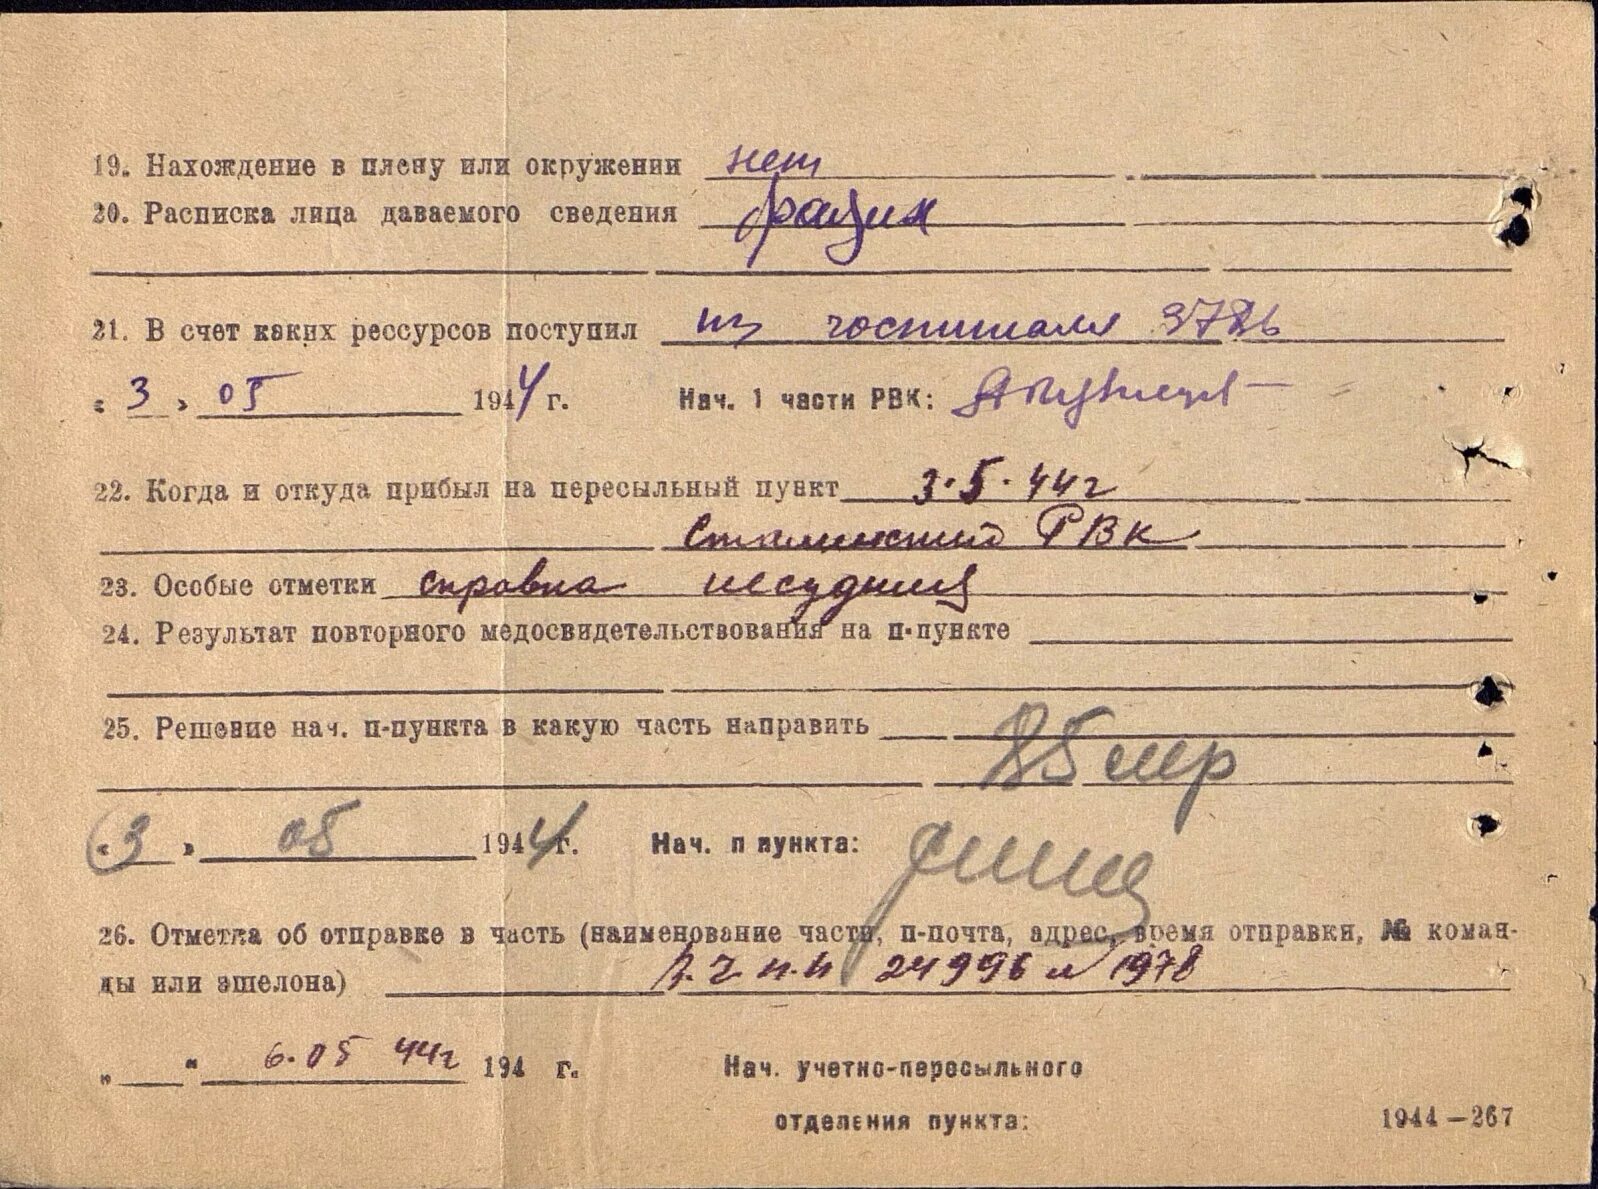 19. Нахождение в плену или окружении нет
20. Расписка лица даваемого сведения
21. В счет каких рессурсов поступил из госпиталя
« 3 » 05 1944 г. Нач. 1 части РВК:
22. Когда и откуда прибыл на пересыльный пункт 3.5.44г
Сталинский РВК
23. Особые отметки справка
24. Результат повторного медосвидетельствования на п-пункте
25. Решение нач. п-пункта в какую часть направить
« 3 » 05 1944 г. Нач. п пункта:
26. Отметка об отправке в часть (наименование части, п-почта, адрес, время отправки, № коман-
ды или эшелона) 24996 1978
„ “ 6.05 44г 194 г. Нач. учетно-пересыльного
отделения пункта:
1944—267